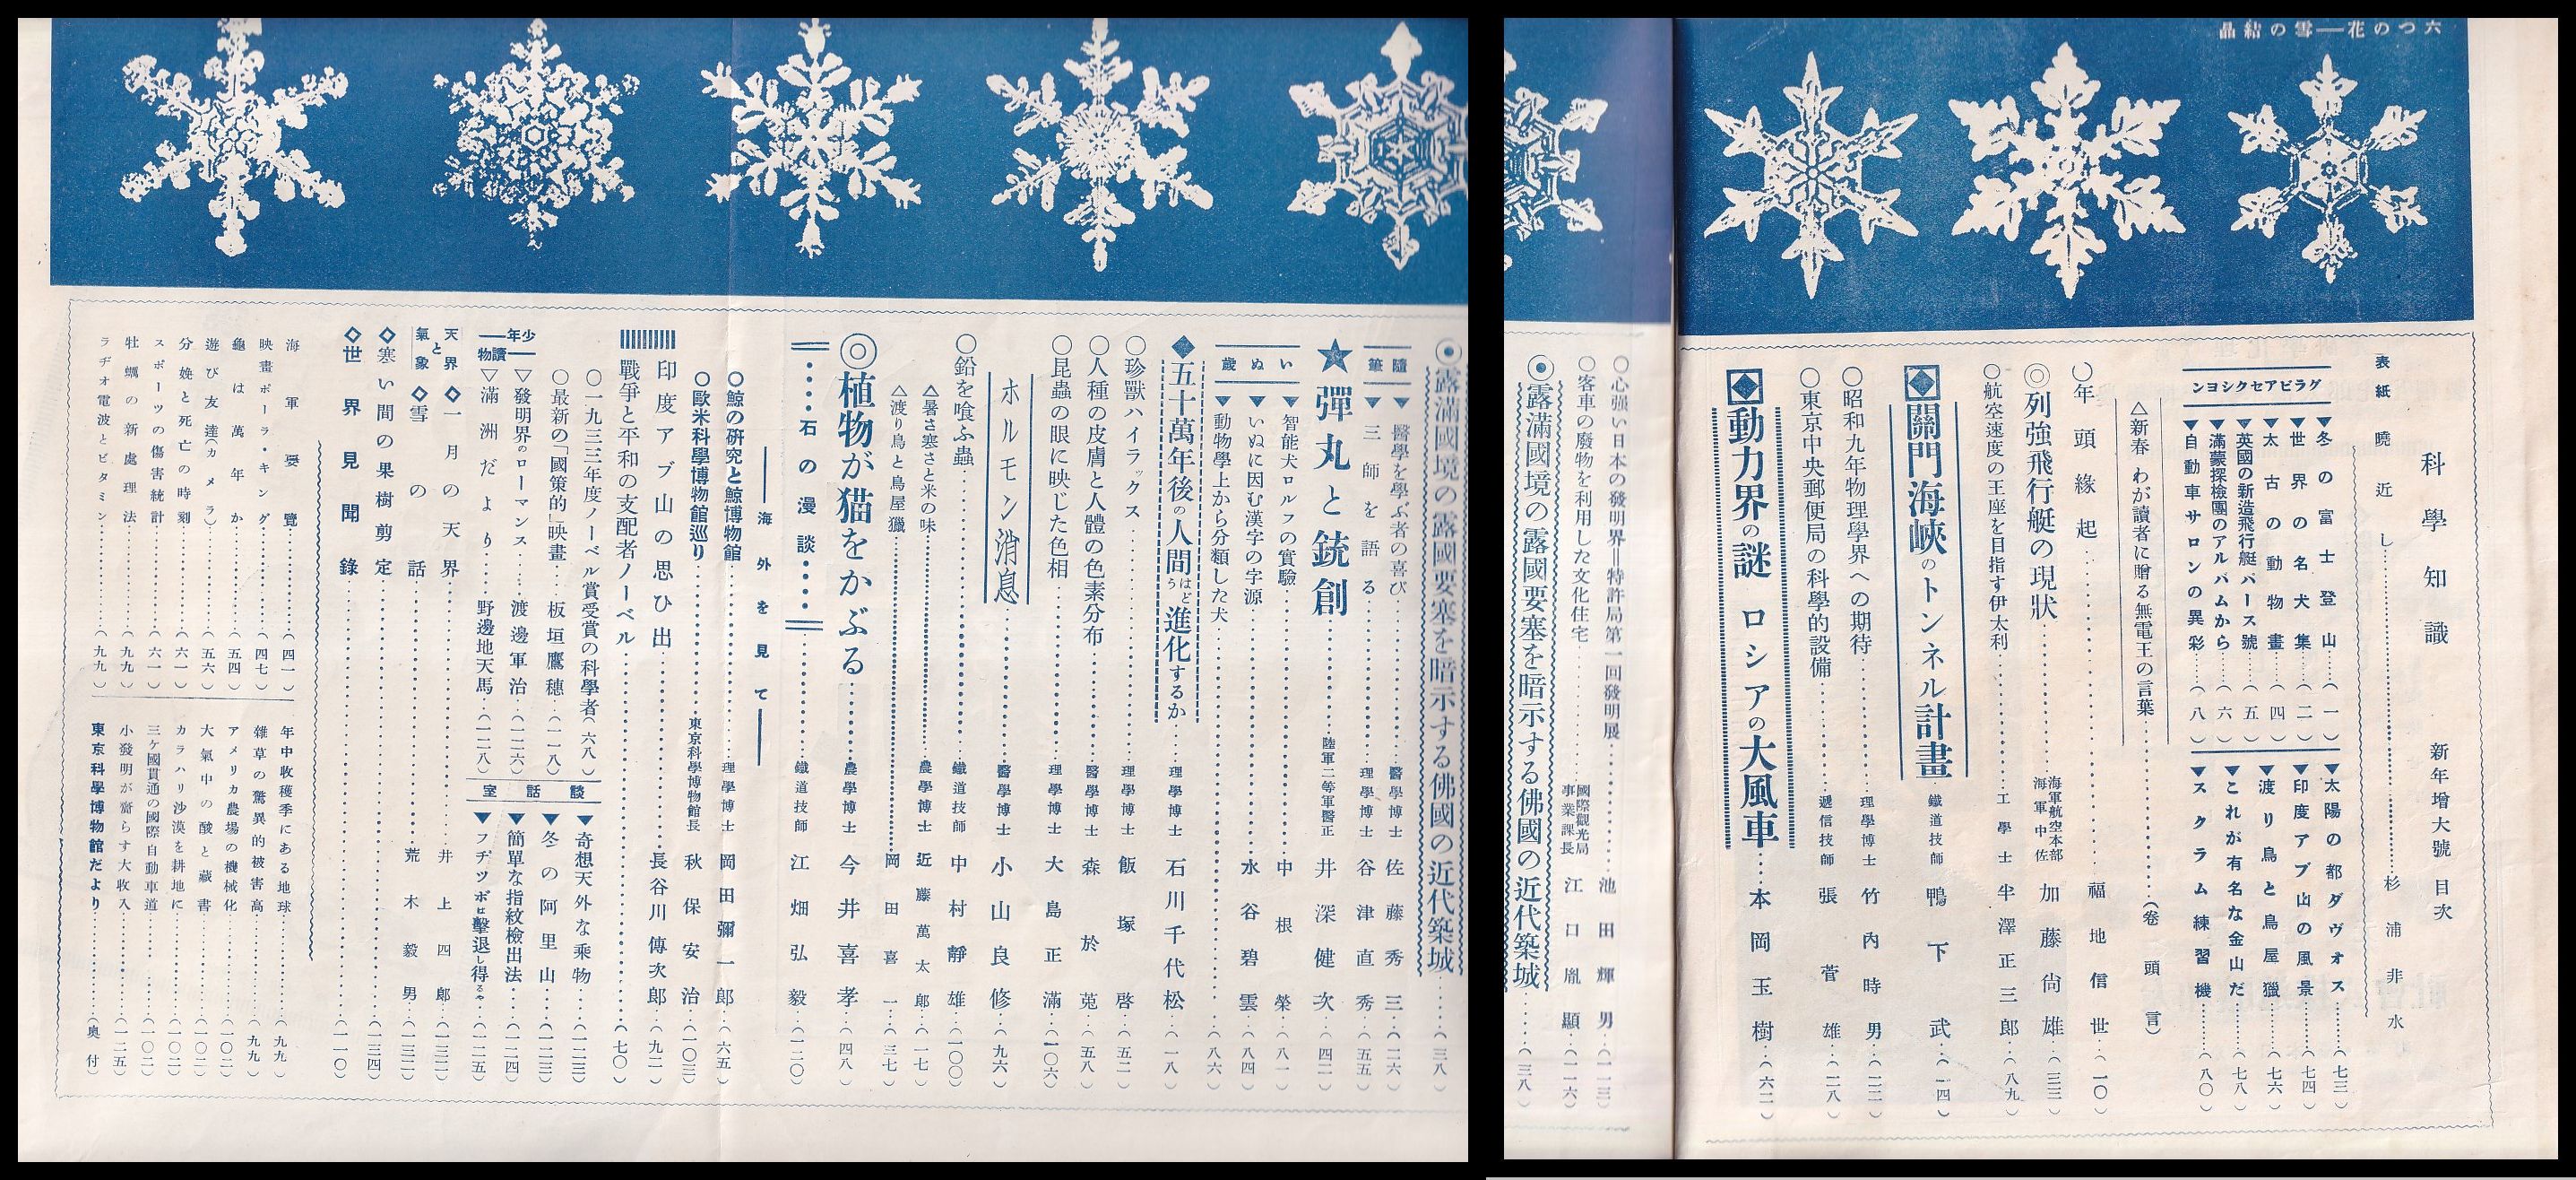 六つの花──雪の結晶
科學知識 新年增大號 目次
表紙 曉近し……杉浦非水
グラビアセクシヨン
▼冬の富士登山……(一)
▼世界の名犬集……(二)
▼太古の動物畫……(四)
▼英國の新造飛行艇パース號……(五)
▼滿蒙探檢團のアルバムから……(六)
▼自動車サロンの異彩……(八)
▼太陽の都ダヴオス……(七三)
▼印度アブ山の風景……(七四)
▼渡り鳥と鳥屋獵……(七六)
▼これが有名な金山だ……(七八)
▼スクラム練習機……(八〇)
△新春 わが讀者に贈る無電王の言葉……(卷頭言)
○年頭緣起……福地信世…(一〇)
◎列强飛行艇の現狀……海軍航空本部 海軍中佐 加藤尙雄…(三三)
○航空速度の王座を目指す伊太利……工學士 半澤正三郎…(八九)
◆關門海峽のトンネル計畫 鐵道技師 鴨下武…(一四)
○昭和九年物理學界への期待……理學博士 竹內時男…(二二)
○東京中央郵便局の科學的設備……遞信技師 張菅雄…(二八)
◆動力界の謎 ロシアの大風車……本岡玉樹…(六二)
○心强い日本の發明界＝特許局第一回發明展……池田輝男…(一一三)
○客車の廢物を利用した文化住宅……國際觀光局 事業課長 江口胤顯…(一一六)
◉露滿國境の露國要塞を暗示する佛國の近代築城……(三八)
隨筆
▼醫學を學ぶ者の喜び……醫學博士 佐藤秀三…(二六)
▼三師を語る……理學博士 谷津直秀…(五五)
★彈丸と銃創……陸軍二等軍醫正 井深健次…(四二)
いぬ歲
▼智能犬ロルフの實驗……中根榮…(八一)
▼いぬに因む漢字の字源……水谷碧雲…(八四)
▼動物學上から分類した犬……(八六)
◆五十萬年後の人間はどう進化するか……理學博士 石川千代松…(一八)
○珍獸ハイラックス……理學博士 飯塚啓…(五二)
○人種の皮膚と人體の色素分布……醫學博士 森於菟…(五八)
○昆蟲の眼に映じた色相……理學博士 大島正滿…(一〇六)
ホルモン消息……醫學博士 小山良修…(九六)
○鉛を喰ふ蟲……鐵道技師 中村靜雄…(一〇〇)
△暑さ寒さと米の味……農學博士 近藤萬太郎…(一七)
△渡り鳥と鳥屋獵……岡田喜一…(三七)
◎植物が猫をかぶる……農學博士 今井喜孝…(四八)
……石の漫談……鐵道技師 江畑弘毅…(一二〇)
──海外を見て──
○鯨の硏究と鯨博物館……理學博士 岡田彌一郎…(六五)
○歐米科學博物館巡り……東京科學博物館長 秋保安治…(一〇三)
印度アブ山の思ひ出……長谷川傳次郎…(九二)
戰爭と平和の支配者ノーベル……(七〇)
○一九三三年度ノーベル賞受賞の科學者(六八)
○最新の「國策的」映畫…板垣鷹穗…(一一八)
少年讀物
▽發明界のローマンス……渡邊軍治…(一二六)
▽滿洲だより……野邊地天馬…(一二八)
談話室
▼奇想天外な乘物……(一二三)
▼冬の阿里山……(一二三)
▼簡單な指紋檢出法……(一二四)
▼フヂツボは擊退し得るや…(一二五)
天界と氣象
◇一月の天界……井上四郎…(一三二)
◇雪の話……荒木毅男…(一三二)
◇寒い間の果樹剪定……(一三四)
◇世界見聞錄……(一一〇)
海軍要覽……(四一)
映畫ポーラ・キング……(四七)
龜は萬年か……(五四)
遊び友達(カメラ)……(五六)
分娩と死亡の時刻……(六一)
スポーツの傷害統計……(六一)
牡蠣の新處理法……(九九)
ラヂオ電波とビタミン……(九九)
年中收穫季にある地球……(九九)
雜草の驚異的被害高……(九九)
アメリカ農場の機械化……(一〇二)
大氣中の酸と藏書……(一〇二)
カラハリ沙漠を耕地に……(一〇二)
三ケ國貫通の國際自動車道……(一〇二)
小發明が齎らす大收入……(一二五)
東京科學博物館だより……(奧付)